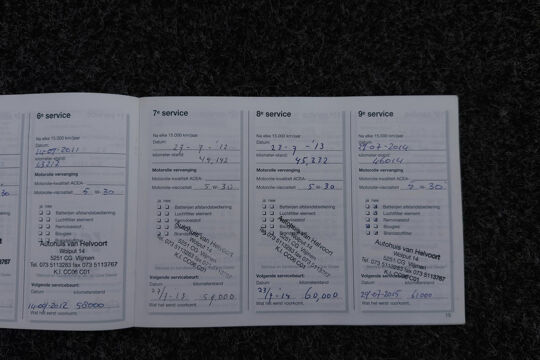 6e service
Na elke 15.000 km/jaar
Datum:
14-09-2011
kilometer-stand:
43212
Motorolie vervanging
Motorolie-kwaliteit ACEA-
Motorolie-viscositeit 5 = 30
ja nee
Batterijen afstandsbediening
Luchtfilter element
Remvloeistof
Bougies
Brandstoffilter
Autohuis van Helvoort
Wolput 14
5251 CG Vlijmen
Tel. 073 5113283 fax 073 5113767
K.I. CC06 C01
Volgende servicebeurt:
Datum kilometerstand
14-09-2012 58000
Wat het eerst voorkomt.
7e service
Na elke 15.000 km/jaar
Datum:
27-9-'12
kilometer-stand:
44,142
Motorolie vervanging
Motorolie-kwaliteit ACEA-
Motorolie-viscositeit 5 = 30
ja nee
Batterijen afstandsbediening
Luchtfilter element
Remvloeistof
Bougies
Brandstoffilter
Autohuis van Helvoort
Wolput 14
5251 CG Vlijmen
Tel. 073 5113283 fax 073 5113767
K.I. CC06 C01
Volgende servicebeurt:
Datum kilometerstand
59,000
Wat het eerst voorkomt.
8e service
Na elke 15.000 km/jaar
Datum:
23-7-'13
kilometer-stand:
45,272
Motorolie vervanging
Motorolie-kwaliteit ACEA-
Motorolie-viscositeit 5 = 30
ja nee
Batterijen afstandsbediening
Luchtfilter element
Remvloeistof
Bougies
Brandstoffilter
Autohuis van Helvoort
Wolput 14
5251 CG Vlijmen
Tel. 073 5113283 fax 073 5113767
K.I. CC06 C01
Volgende servicebeurt:
Datum kilometerstand
23/7-14 60,000
Wat het eerst voorkomt.
9e service
Na elke 15.000 km/jaar
Datum:
29-07-2014
kilometer-stand:
46014
Motorolie vervanging
Motorolie-kwaliteit ACEA-
Motorolie-viscositeit 5 = 30
ja nee
Batterijen afstandsbediening
Luchtfilter element
Remvloeistof
Bougies
Brandstoffilter
Autohuis van Helvoort
Wolput 14
5251 CG Vlijmen
Tel. 073 5113283 fax 073 5113767
K.I. CC06 C01
Volgende servicebeurt:
Datum kilometerstand
29-07-2015 61000
Wat het eerst voorkomt.
15